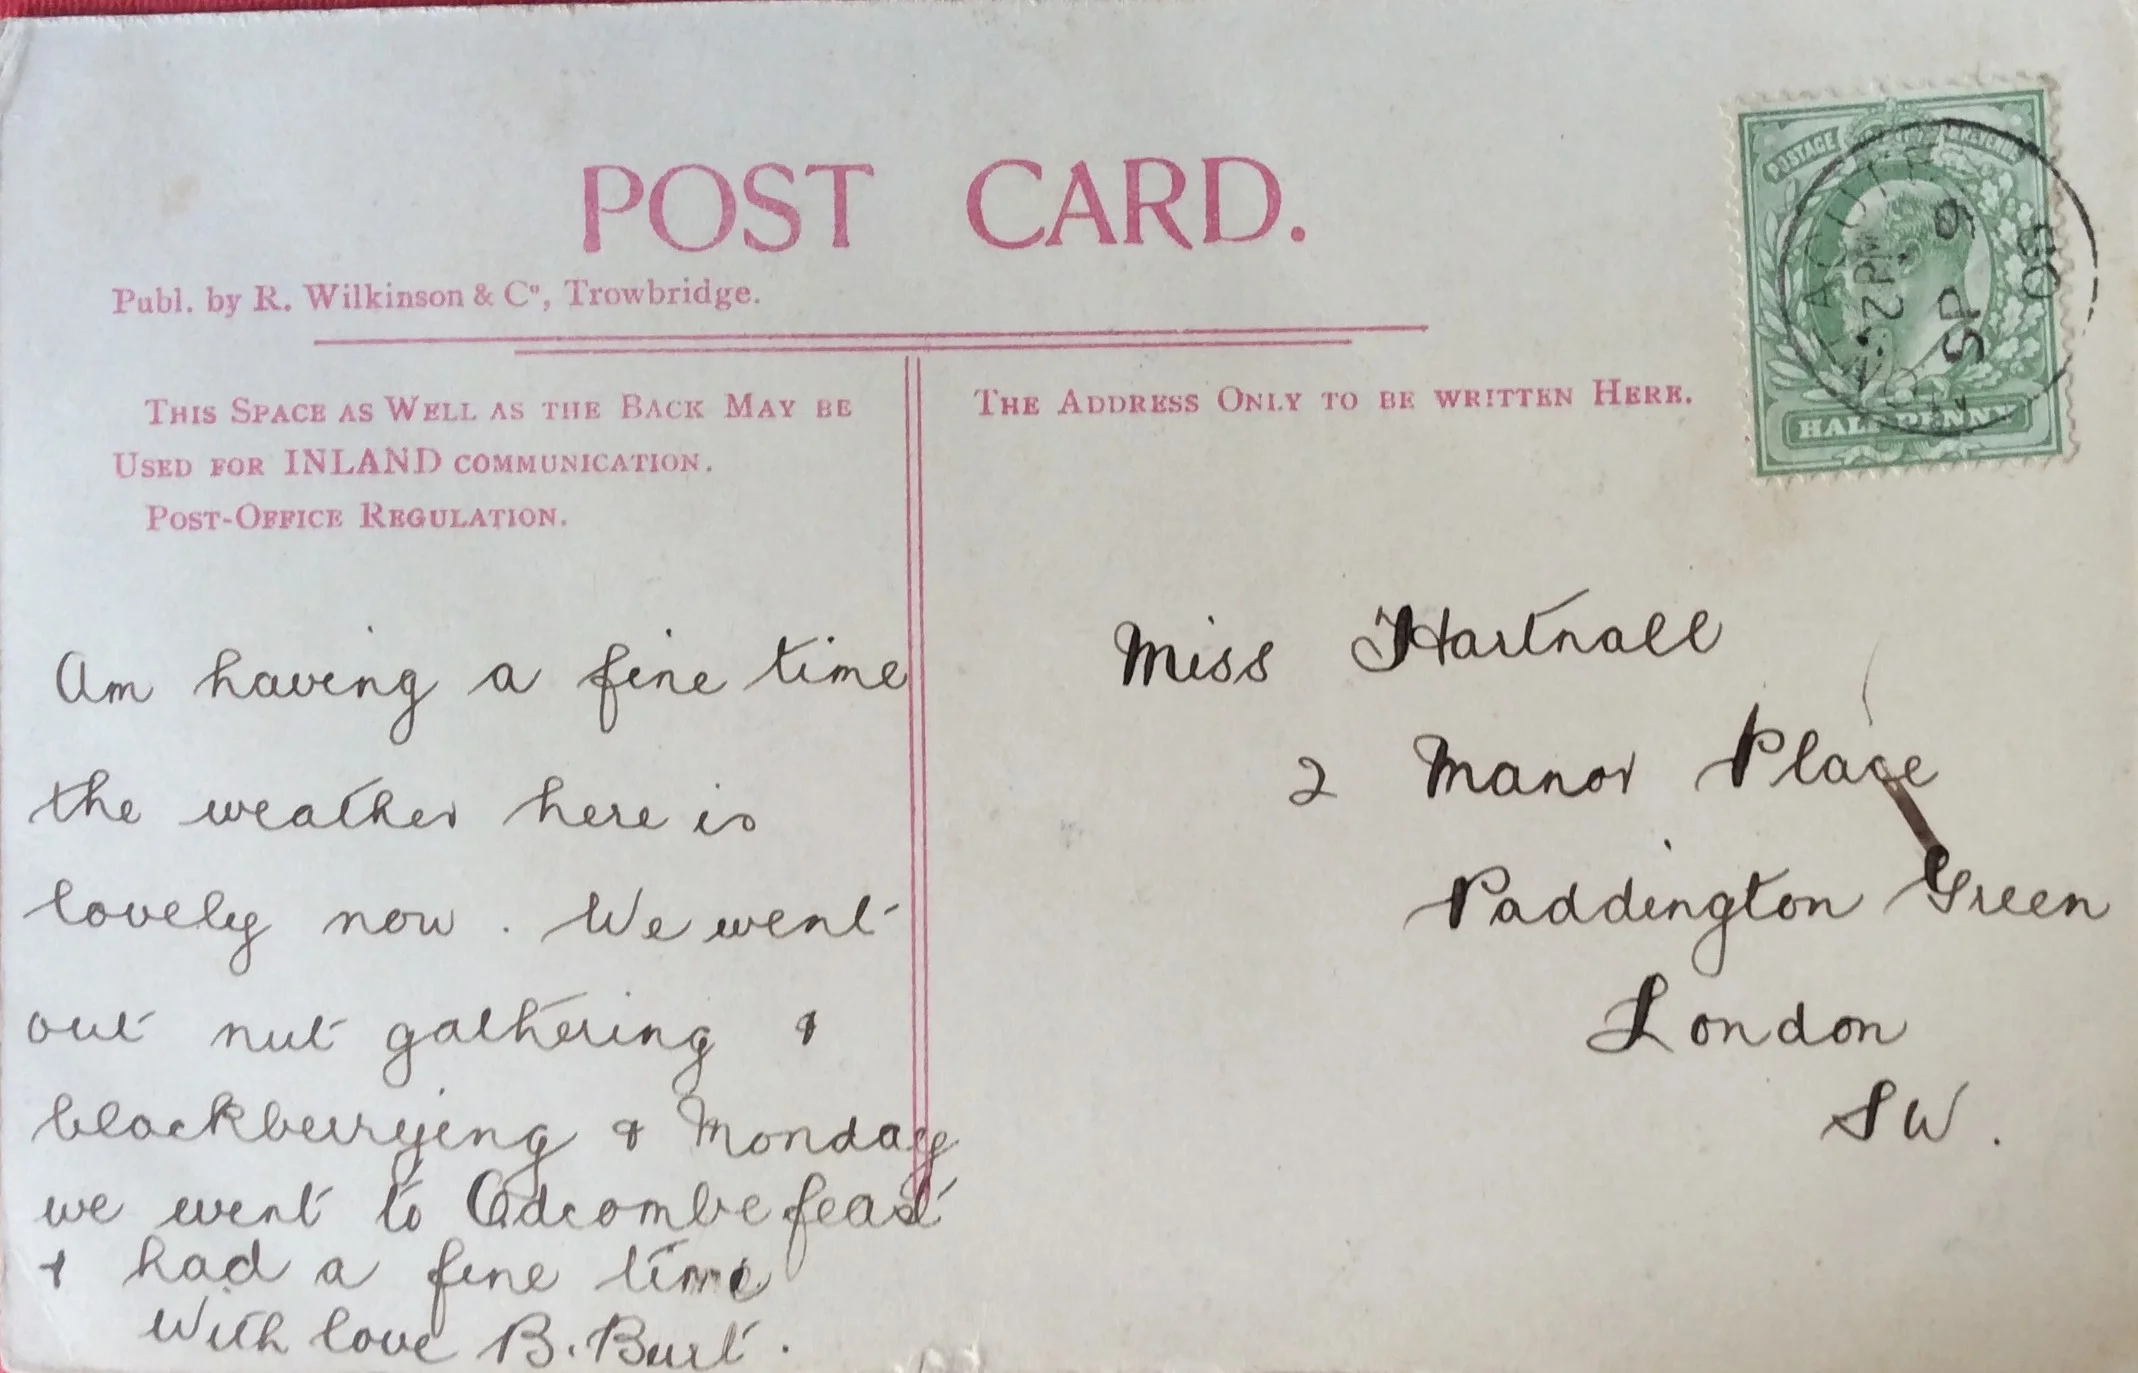 POST CARD.
Publ. by R. Wilkinson & Co, Trowbridge.
THIS SPACE AS WELL AS THE BACK MAY BE
USED FOR INLAND COMMUNICATION.
POST-OFFICE REGULATION.
Am having a fine time
the weather here is
lovely now. We went
out nut gathering &
blackberrying & Monday
we went to Odcombe feast
& had a fine time
With love B. Burt.
THE ADDRESS ONLY TO BE WRITTEN HERE.
POSTAGE
HALFPENNY
2 PM
SP 9
09
Miss Hartnall
2 Manor Place
Paddington Green
London
SW.